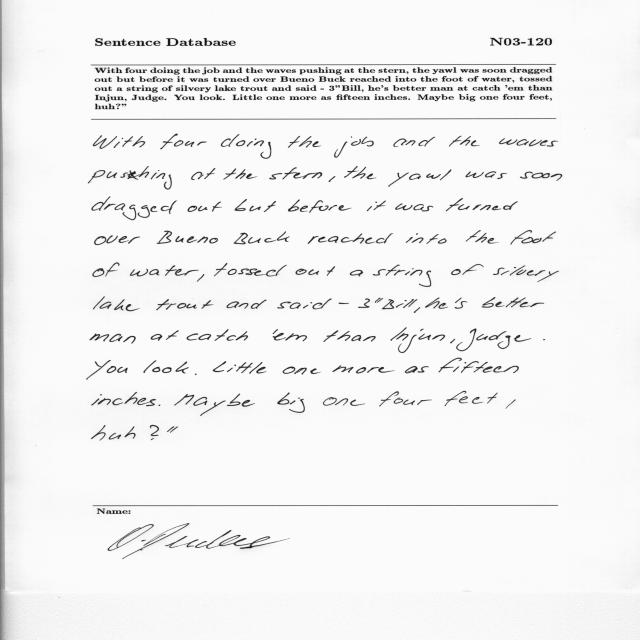 Sentence Database N03-120
With four doing the job and the waves pushing at the stern, the yawl was soon dragged
out but before it was turned over Bueno Buck reached into the foot of water, tossed
out a string of silvery lake trout and said - 3"Bill, he's better man at catch 'em than
Injun, Judge. You look. Little one more as fifteen inches. Maybe big one four feet,
huh?"
With four doing the job and the waves
pushing at the stern, the yawl was soon
dragged out but before it was turned
over Bueno Buck reached into the foot
of water, tossed out a string of silvery
lake trout and said - 3"Bill, he's better
man at catch 'em than Injun, Judge.
You look. Little one more as fifteen
inches. Maybe big one four feet,
huh?"
Name: